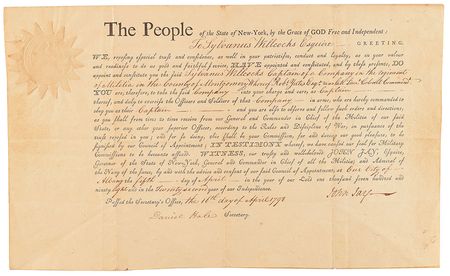 The People of the State of New-York, by the Grace of GOD Free and Independent:
To Sylvanus Willcocks Esquire GREETING.
WE, reposing special trust and confidence, as well in your patriotism, conduct and loyalty, as in your valour
and readiness to do us good and faithful service, HAVE appointed and constituted, and by these presents, DO
appoint and constitute you the said Sylvanus Willcocks Captain of a Company in the regiment
of Militia in the County of Montgomery Whereof Esqr. is Lieut. Colonel Commandt.
YOU are, therefore, to take the said Company into your charge and care, as Captain
thereof, and duly to exercise the Officers and Soldiers of that Company in arms, who are hereby commanded to
obey you as their Captain and you are also to observe and follow such orders and directions,
as you shall from time to time receive from our General and Commander in Chief of the Militia of our said
State, or any other your Superior Officer, according to the Rules and Discipline of War, in pursuance of the
trust reposed in you; and for so doing, this shall be your Commission, for and during our good pleasure, to be
signified by our Council of Appointment. IN TESTIMONY whereof, we have caused our seal for Military
Commissions to be hereunto affixed. WITNESS, our trusty and well-beloved JOHN JAY, Esquire,
Governor of the State of New-York, General and Commander in Chief of all the Militia, and Admiral of
the Navy of the same, by and with the advice and consent of our said Council of Appointment, at our City of
Albany the fifth day of April in the year of our Lord one thousand seven hundred and
ninety eight and in the Twenty second year of our Independence.
Passed the Secretary's Office, the 16th day of April 1798
John Jay
Daniel Hale Secretary.